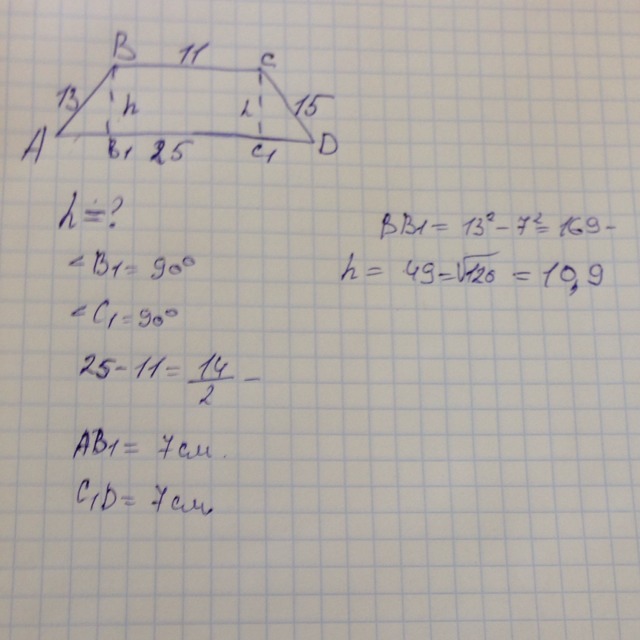 B 11 C
13 h h 15
A B1 25 C1 D
h = ?
<B1 = 90°
<C1 = 90°
25 - 11 = 14/2 -
AB1 = 7 см.
C1D = 7 см.
BB1 = 13² - 7² = 169 -
h = 49 = √120 = 10,9